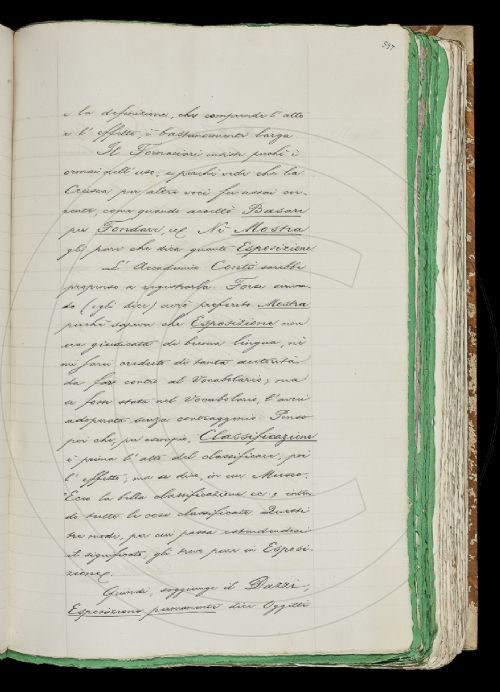 537
e la definizione, che comprende l'atto
e l'effetto, è bastantemente larga
Il Fornaciari insiste perchè è
oramai nell'uso, e perchè vede che la
Crusca per altre voci fu assai cor-
rente, come quando accettò Basare
per Fondare, ec. Nè Mostra
gli pare che dica quanto Esposizione
L'Accademico Conti sarebbe
propenso a registrarla. Forse
do (egli dice) avrei preferito Mostra
perchè sapeva che Esposizione non
era giudicata di buona lingua, nè
mi sarei creduto di tanta autorità
da far contro al Vocabolario; ma
se fosse stata nel Vocabolario, l'avrei
adoprata senza contraggenio. Penso
poi che, per esempio, Classificazione
è prima l'atto del classificare, poi
l'effetto; ma se dico, in un Museo:
Ecco la bella classificazione ec,
do tutte le cose classificate. Questi
tre modi, per cui passa estendendosi
il significato, gli trovo pure in Esposi-
zione.
Quindi, soggiunge il Dazzi,
Esposizione permanente dice Oggetti